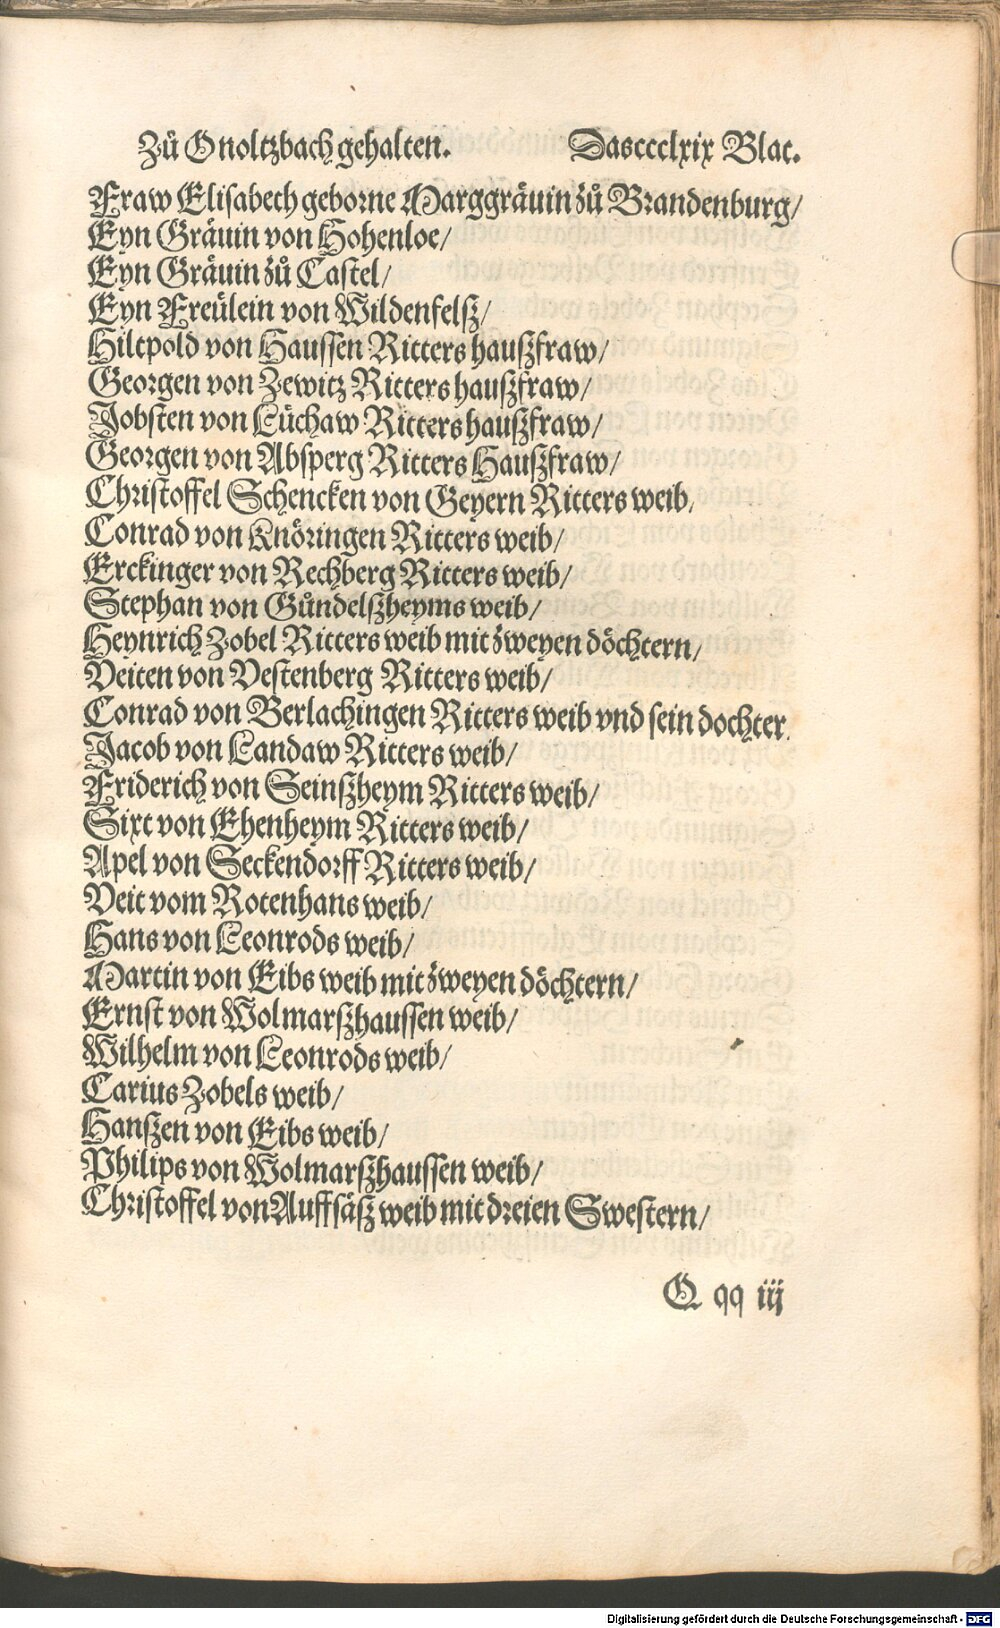 Zů Onoltzbach gehalten. Das cccclxix Blat.
Fraw Elisabeth geborne Marggrävin zů Brandenburg/
Eyn Grävin von Hohenloe/
Eyn Grävin zů Castel/
Eyn Freülein von Wildenfelsz/
Hiltpold von Haussen Ritters hauszfraw/
Georgen von Zewitz Ritters hauszfraw/
Jobsten von Lüchaw Ritters hauszfraw/
Georgen von Absperg Ritters Hauszfraw/
Christoffel Schencken von Geyern Ritters weib/
Conrad von Knöringen Ritters weib/
Erckinger von Rechberg Ritters weib/
Stephan von Gůndelszheyms weib/
Heynrich Zobel Ritters weib mit zweyen döchtern/
Veiten von Vestenberg Ritters weib/
Conrad von Berlachingen Ritters weib vnd sein dochter/
Jacob von Landaw Ritters weib/
Friderich von Seinszheym Ritters weib/
Sixt von Ehenheym Ritters weib/
Apel von Seckendorff Ritters weib/
Veit vom Rotenhans weib/
Hans von Leonrods weib/
Martin von Eibs weib mit zweyen döchtern/
Ernst von Wolmarszhaussen weib/
Wilhelm von Leonrods weib/
Carius Zobels weib/
Hanszen von Eibs weib/
Philips von Wolmarszhaussen weib/
Christoffel von Auffsäsz weib mit dreien Swestern/
Q qq iij
Digitalisierung gefördert durch die Deutsche Forschungsgemeinschaft - DFG